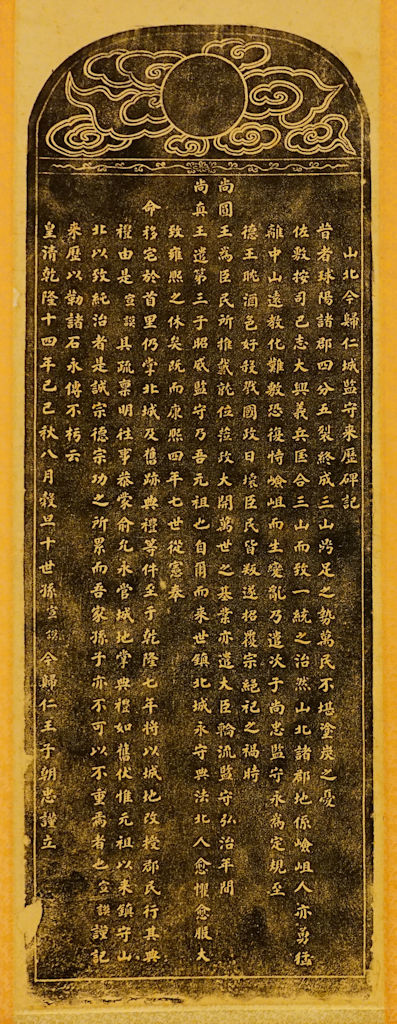 山北今歸仁城監守来歴碑記
昔者球陽諸郡四分五裂終成三山鼎足之勢萬民不堪塗炭之憂
佐敷按司巴志大興義兵匡合三山而致一統之治然山北諸郡地係嶮岨人亦勇猛
離中山遠教化難敷恐復恃嶮岨而生變亂乃遣次子尚忠監守永為定規至
德王耽酒色好殺戮國政日壞臣民皆叛遂招覆宗絕祀之禍時
尚圓王為臣民所推戴就位蒞政大開萬世之基業亦遣大臣輪流監守弘治年間
尚真王遣第三子昭威監守乃吾元祖也自爾而来世鎮北城永守典法北人愈懼愈服大
致雍熙之休矣既而康熙四年七世從憲奉
命移宅於首里仍掌北城及舊跡典禮等件至于乾隆七年将以城地改授郡民行其典
禮由是宣謨具疏稟明往事恭蒙俞允永管城地掌典禮如舊伏惟元祖以来鎮守山
北以致純治者是誠宗德宗功之所累而吾家孫子亦不可以不重焉者也宣謨謹記
来歴以勒諸石永傳不朽云
皇清乾隆十四年己巳秋八月穀旦十世孫宣謨今歸仁王子朝忠謹立